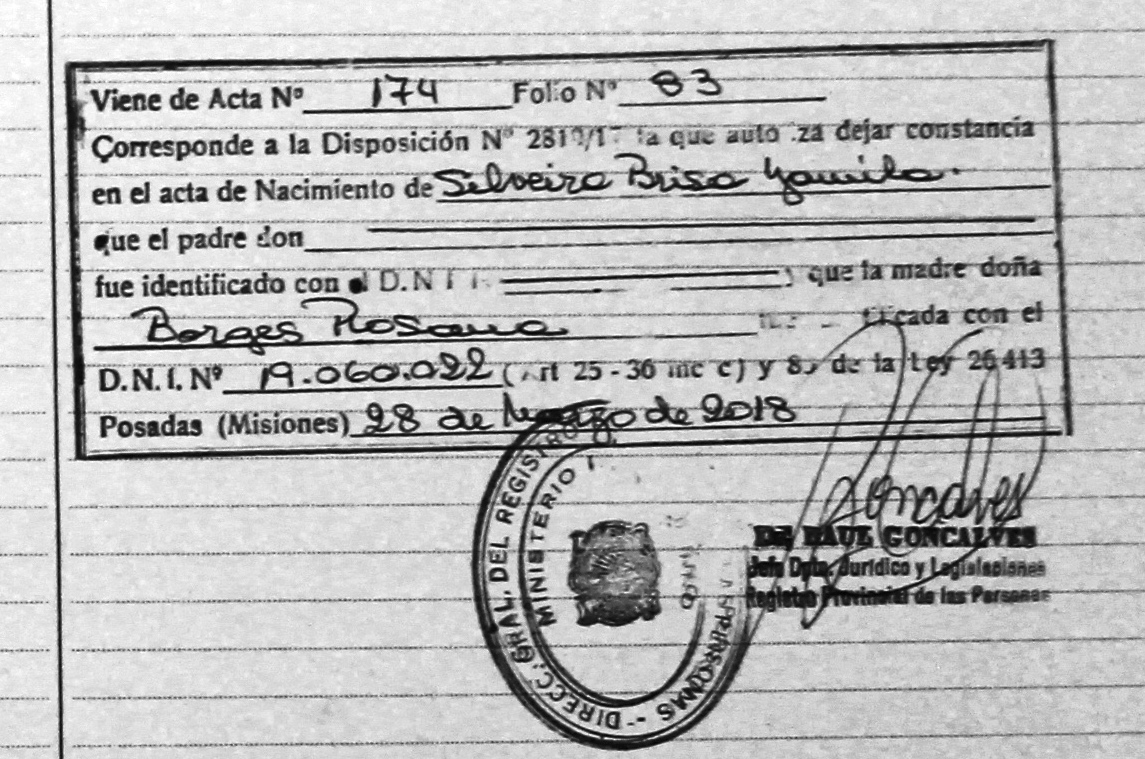 Viene de Acta Nº 174 Folio Nº 83
Corresponde a la Disposición Nº la que dejar constancia
en el acta de Nacimiento de Silveira Brisa Yamila.
que el padre don
fue identificado con el D.N.I. que la madre doña
Borges Rosana con el
D.N.I. Nº 19.060.022 (Art 25 - 36 inc c) y de la Ley 26.413
Posadas (Misiones) 28 de Marzo de 2018
DIRECC. GRAL. DEL REGISTRO PERSONAS
MINISTERIO
Goncalves
DR. RAUL GONCALVES
Jefe Dpto. Jurídico y Legislaciones
Registro Provincial de las Personas